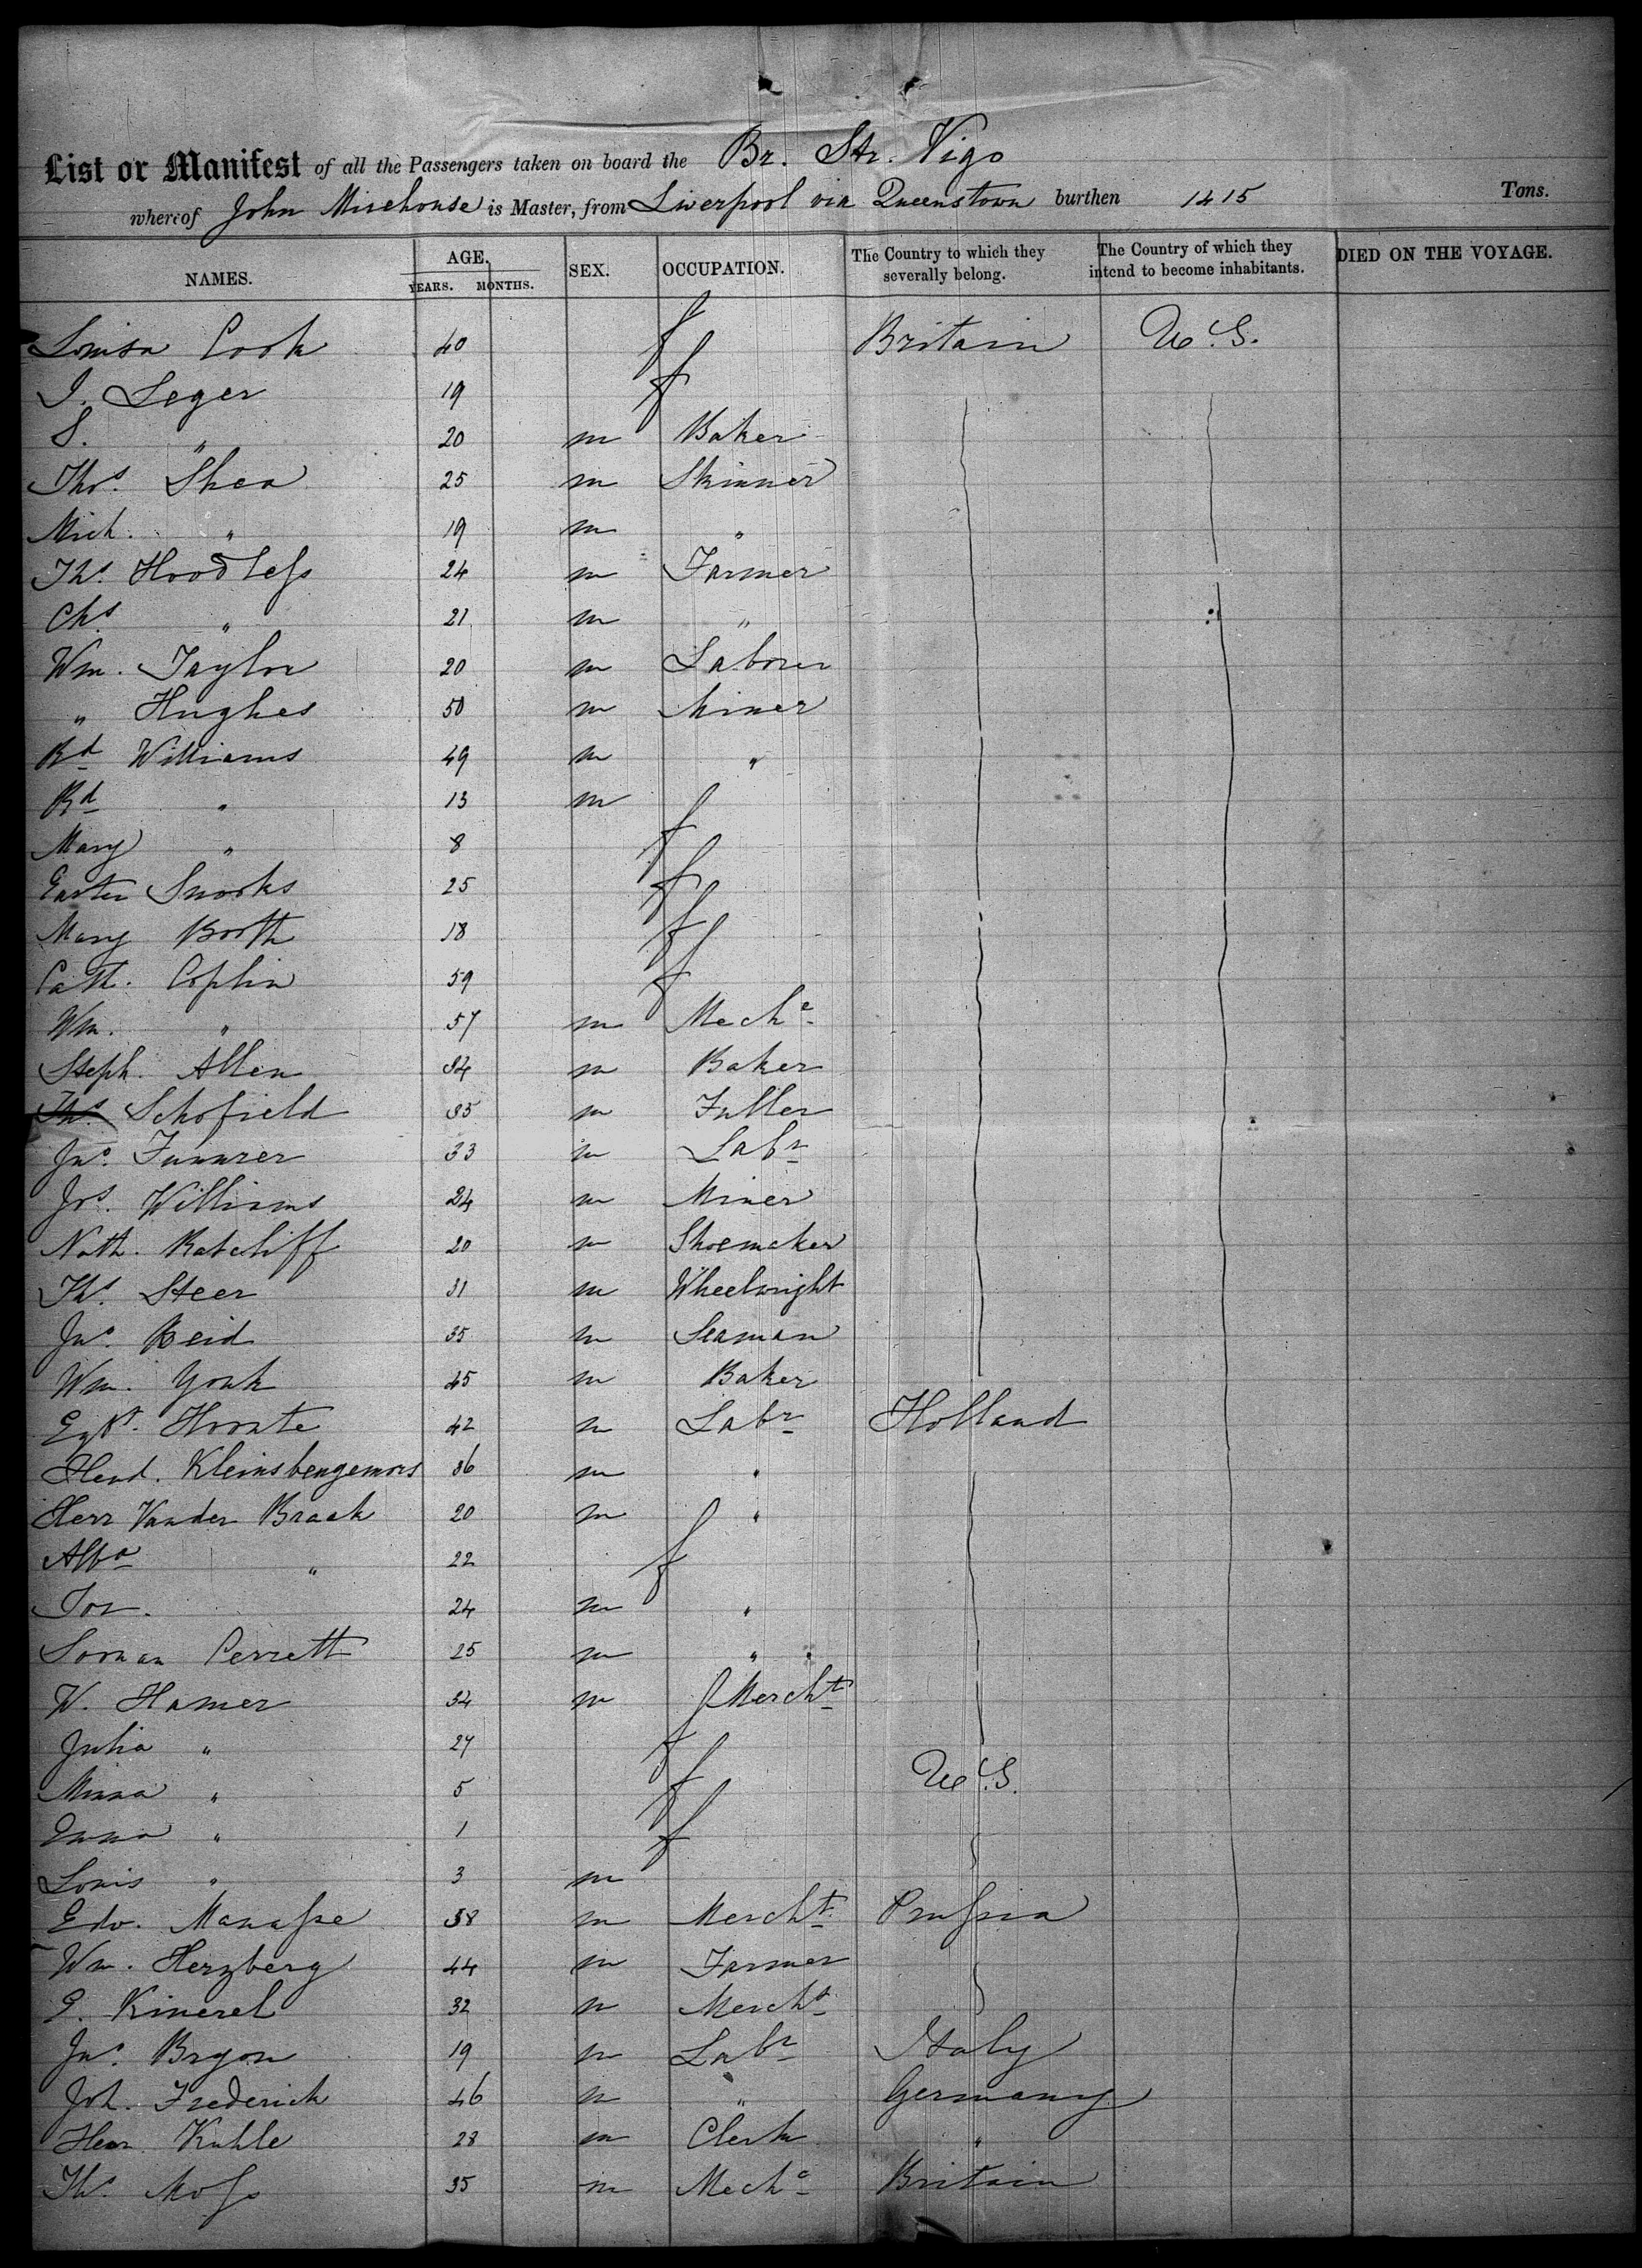 List or Manifest of all the Passengers taken on board the Br. Str. Vigo
whereof John Mirehouse is Master, from Liverpool via Queenstown burthen 1415 Tons.
NAMES. AGE. YEARS. MONTHS. SEX. OCCUPATION. The Country to which they severally belong. The Country of which they intend to become inhabitants. DIED ON THE VOYAGE.
Louisa Cook 40 f Britain U.S.
J. Leger 19 f
S. " 20 m Baker
Thos. Shea 25 m Skinner
Mich. " 19 m "
Ths. Hoodless 24 m Farmer
Chs. " 21 m "
Wm. Taylor 20 m Laborer
" Hughes 50 m Miner
Rd Williams 49 m "
Rd " 13 m
Mary " 8 f
Easter Snooks 25 f
Mary Booth 18 f
Cath. Coplin 59 f
Wm. " 57 m Mechc
Steph. Allen 34 m Baker
Ths. Schofield 35 m Fuller
Jno. 33 m Labr
Jos. Williams 24 m Miner
Nath. Ratcliff 20 m Shoemaker
Ths. Steer 31 m Wheelwright
Jno. Reid 35 m Seaman
Wm. York 45 m Baker
Egbt. Hoonte 42 m Labr Holland
Hend. 36 m "
Herr Vander Braak 20 m "
Alba " 22 f
Tor. 24 m "
Perrett 25 m "
W. Hamer 34 m Mercht
Julia " 27 f
Minna " 5 f U.S.
Emma " 1 f
Louis " 3 m
Edv. Manasse 38 m Mercht. Prussia
Wm. Herzberg 44 m Farmer
E. Kinerel 32 m Mercht
Jno. Bryon 19 m Labr Italy
Joh. Frederick 46 m " Germany
Herr. Kuhle 28 m Clerk "
Ths. Moss 35 m Mechc Britain